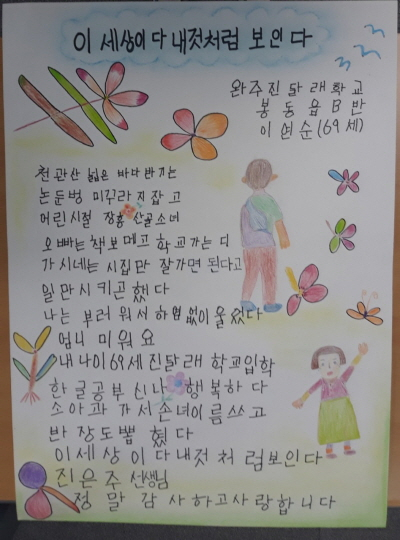 이 세상이 다 내것처럼 보인다
완주진달래학교
봉동읍B반
이연순(69세)
천관산 넓은 바다반기는
논둔벙 미꾸라지잡고
어린시절 장흥 산골소녀
오빠는 책보메고 학교가는디
가시네는 시집만 잘가면 된다고
일만시키곤했다
나는 부러워서 하염없이 울었다
엄니 미워요
내나이69세진달래학교입학
한글공부신나 행복하다
소아과가서손녀이름쓰고
반장도뽑혔다
이세상이다내것처럼보인다
진은주선생님
정말감사하고사랑합니다